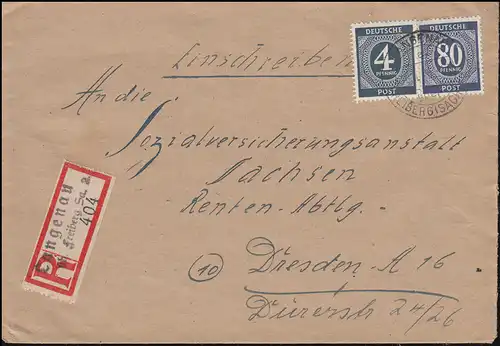 Einschreiben
DEUTSCHE
4
PFENNIG
POST
DEUTSCHE
80
PFENNIG
POST
An die
Sozialversicherungsanstalt
Sachsen
Renten-Abtlg.
10
Dresden-A 16
Dürerstr 24/26
R
Langenau
Freiberg Sa. a
404